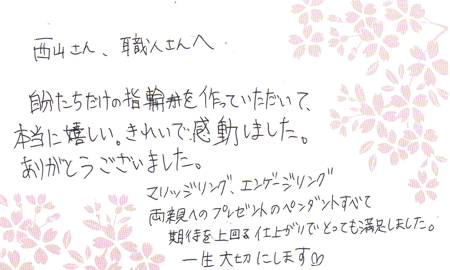 西山さん、職人さんへ
自分たちだけの指輪を作っていただいて、
本当に嬉しい。きれいで感動しました。
ありがとうございました。
マリッジリング、エンゲージリング
両親へのプレゼントのペンダントすべて
期待を上回る仕上がりでとっても満足しました。
一生大切にします♡